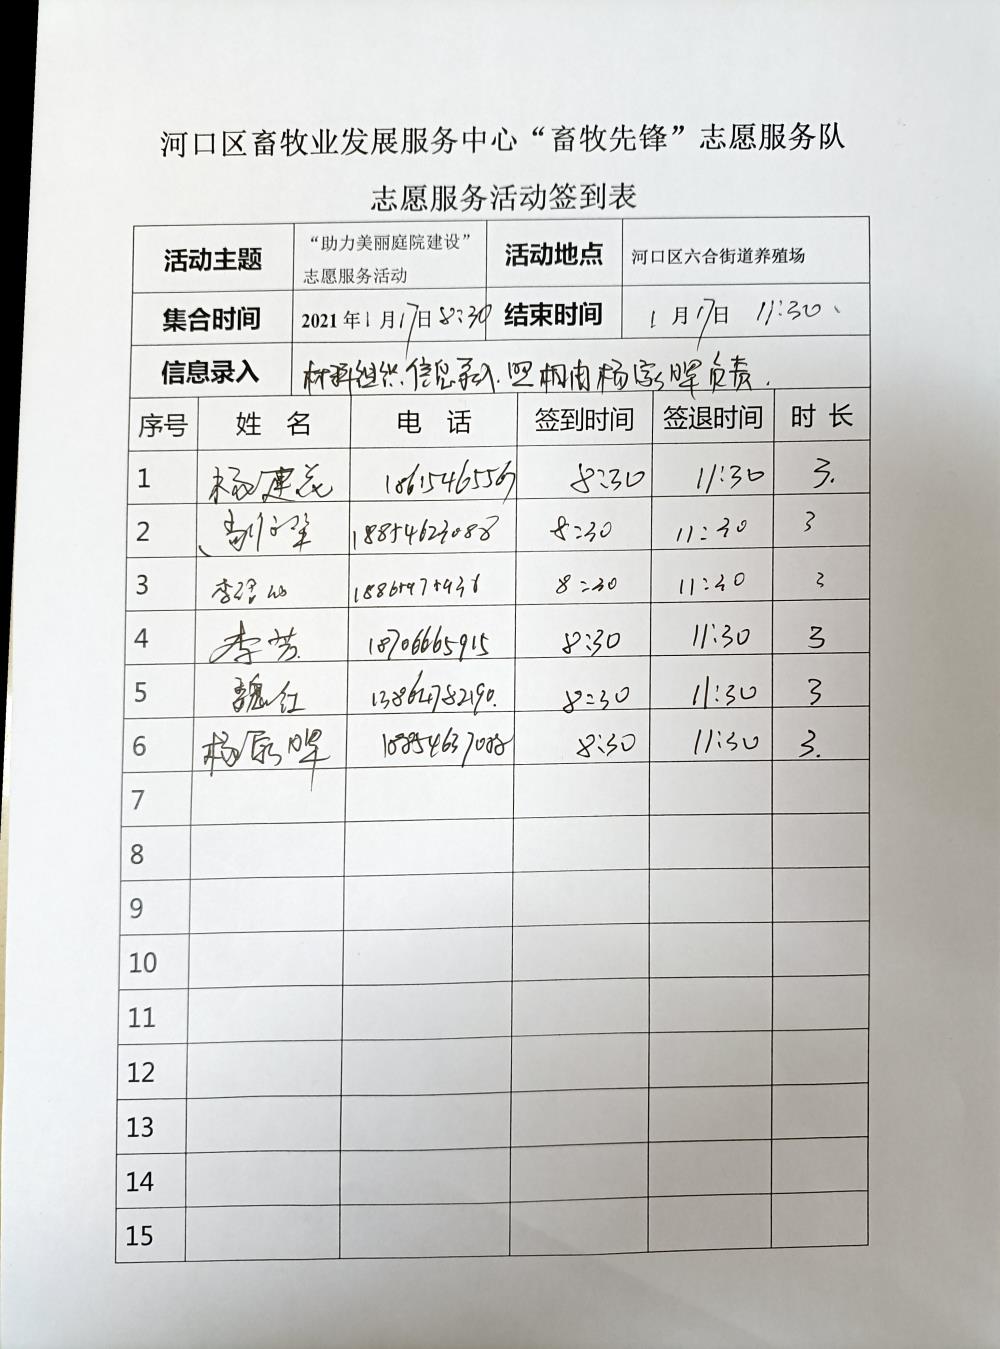 河口区畜牧业发展服务中心“畜牧先锋”志愿服务队
志愿服务活动签到表
活动主题 “助力美丽庭院建设”志愿服务活动 活动地点 河口区六合街道养殖场
集合时间 2021年1月17日 8:30 结束时间 1月17日 11:30
信息录入 材料组织.信息录入.照相由杨家晖负责.
序号 姓 名 电 话 签到时间 签退时间 时 长
1 杨建花 18615465567 8:30 11:30 3.
2 18854623088 8:30 11:30 3
3 8:30 11:30 3
4 李芳 18706665915 8:30 11:30 3
5 魏红 13864782190. 8:30 11:30 3
6 杨家晖 18854637088 8:30 11:30 3.
7
8
9
10
11
12
13
14
15